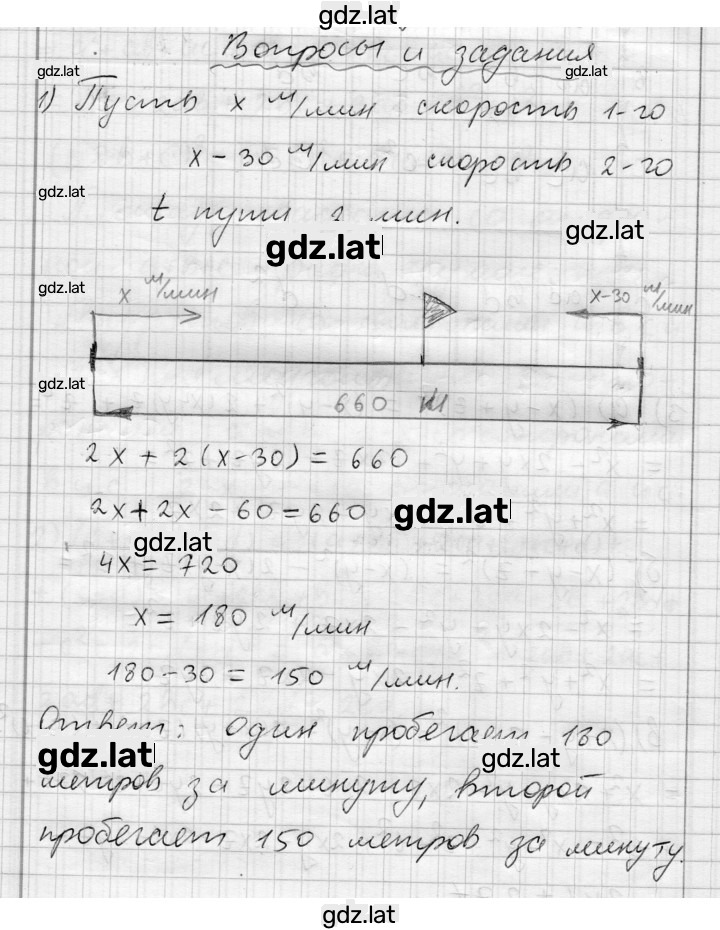 gdz.lat
Вопросы и задания
gdz.lat gdz.lat
1) Пусть x м/мин скорость 1-го
x - 30 м/мин скорость 2-го
gdz.lat
t пути 2 мин.
gdz.lat gdz.lat
gdz.lat
x м/мин x-30 м/мин
gdz.lat
660 м
2x + 2(x-30) = 660
2x + 2x - 60 = 660
gdz.lat
gdz.lat
4x = 720
x = 180 м/мин
180 - 30 = 150 м/мин.
Ответ: Один пробегает 180
gdz.lat gdz.lat
метров за минуту, второй
пробегает 150 метров за минуту.
gdz.lat